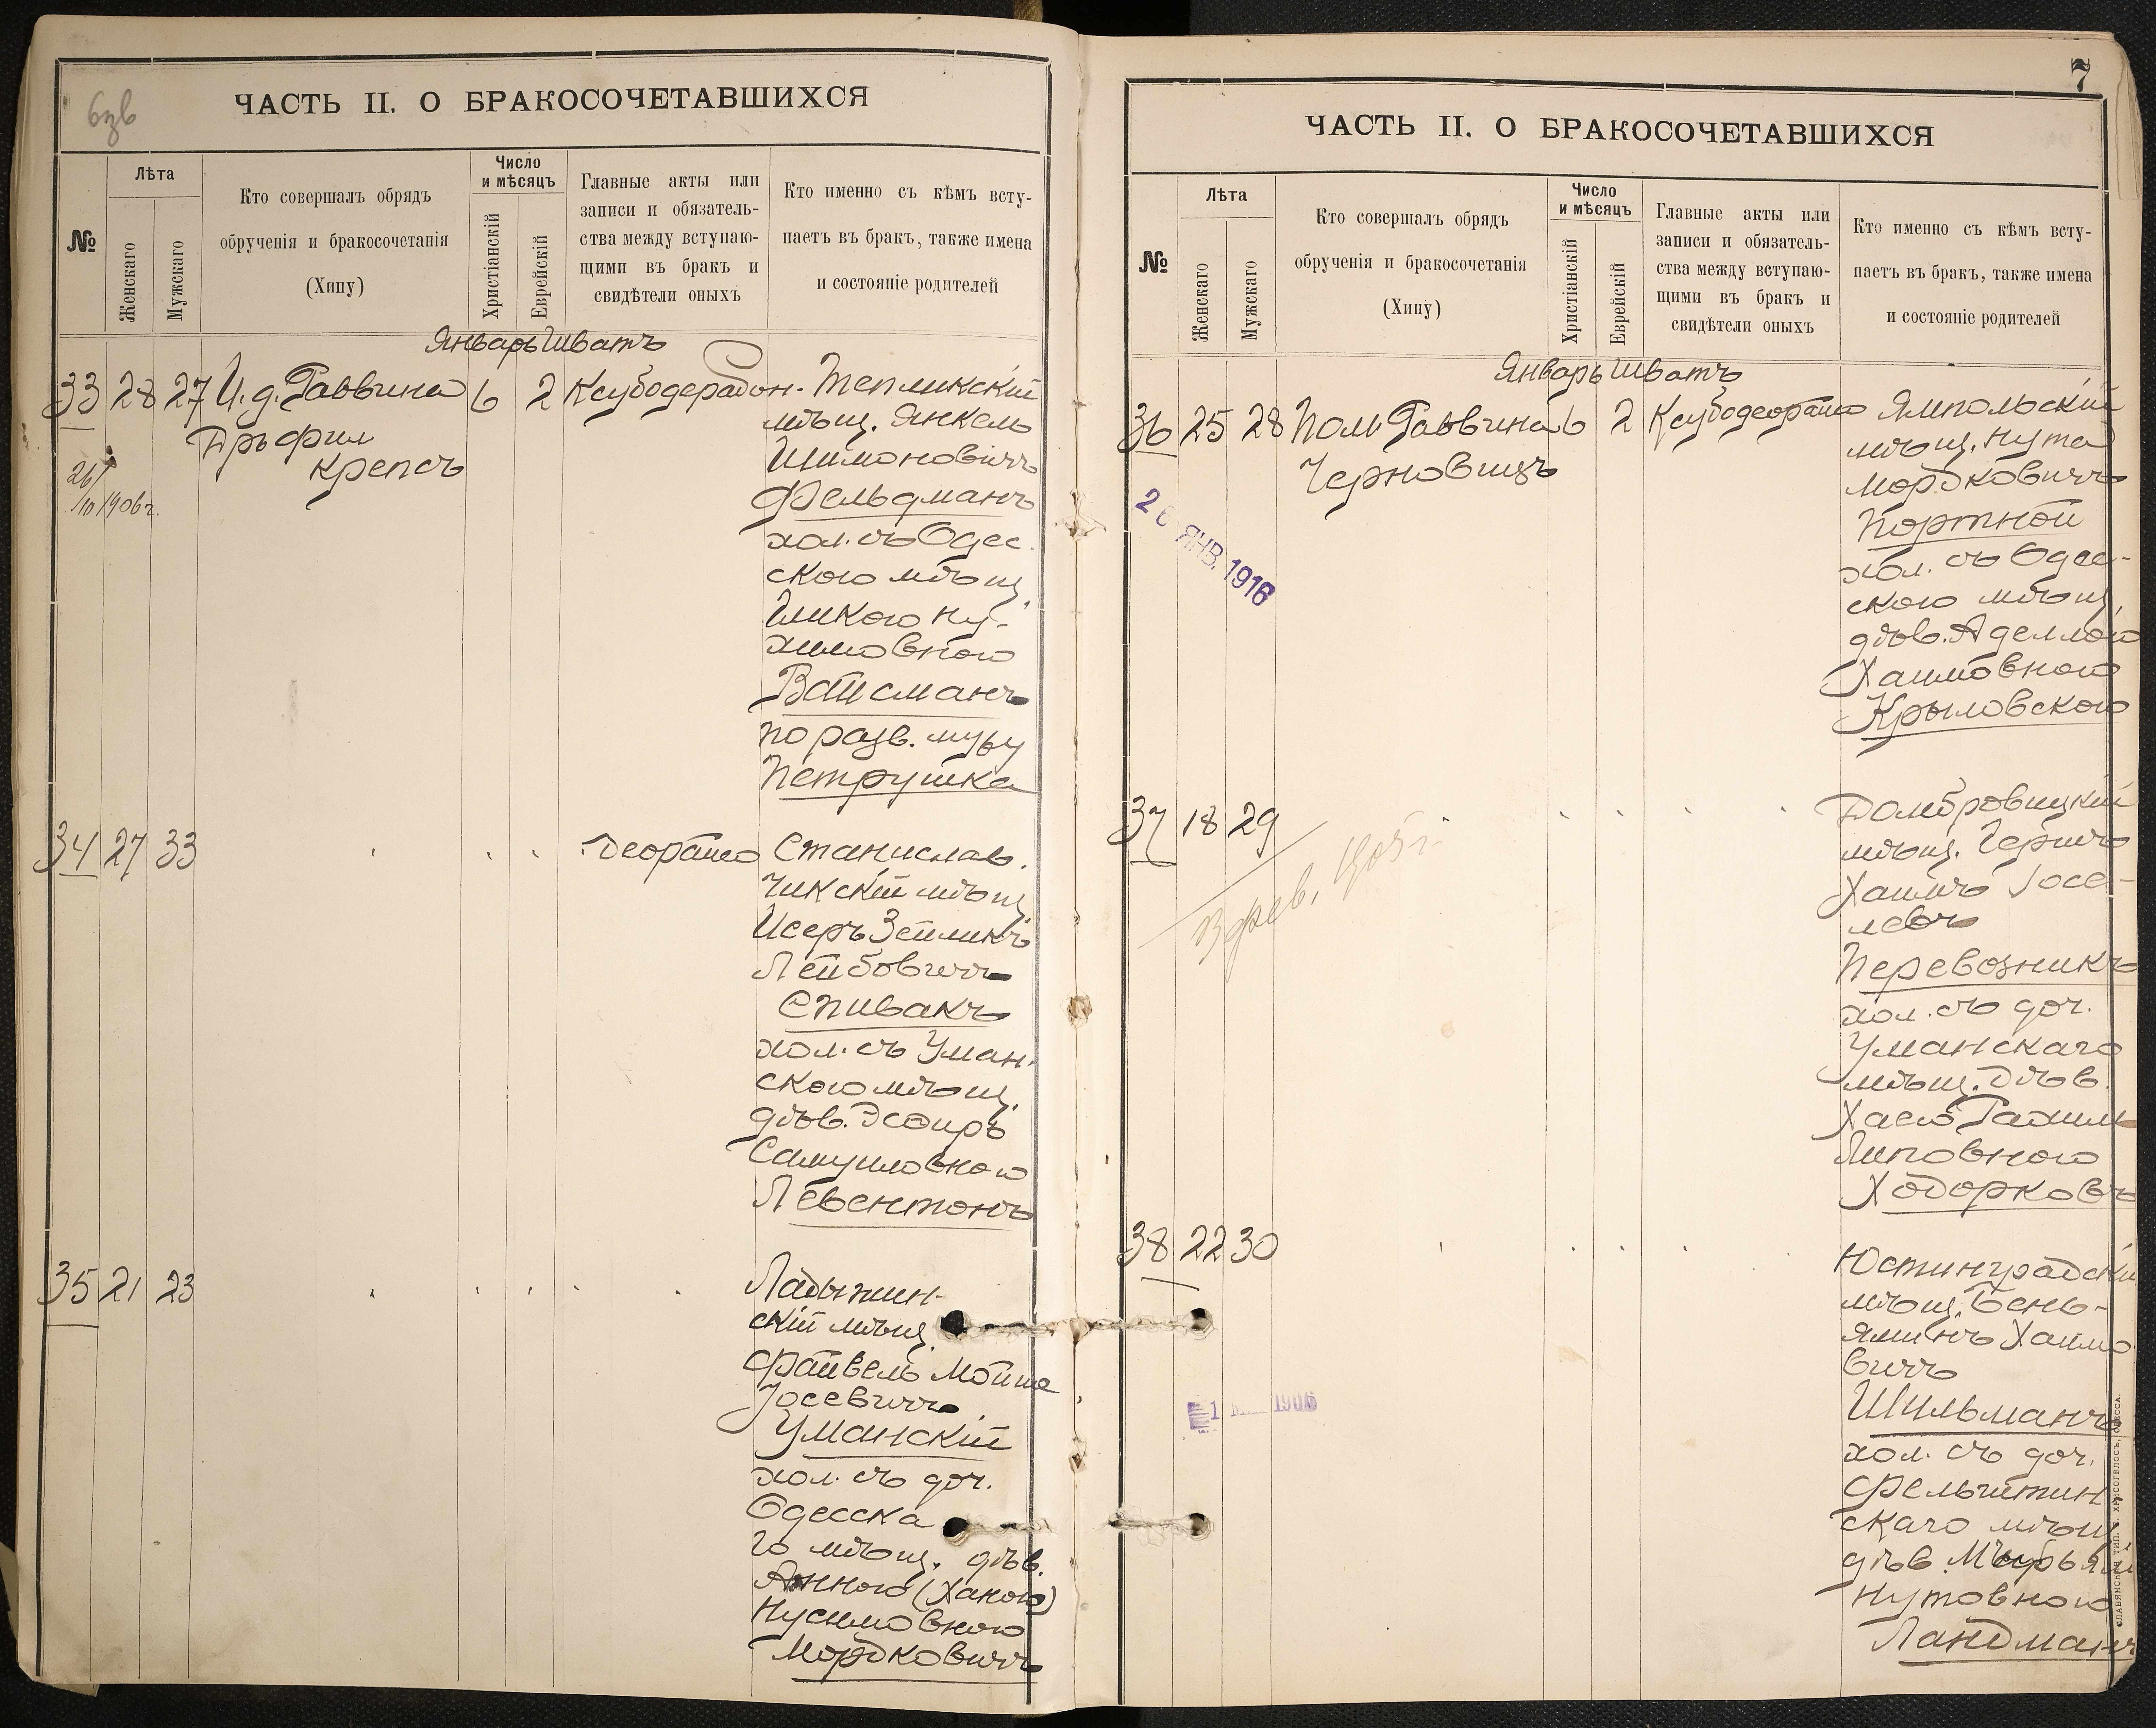 6зв
ЧАСТЬ II. О БРАКОСОЧЕТАВШИХСЯ
№
Лѣта
Женскаго
Мужскаго
Кто совершалъ обрядъ
обрученія и бракосочетанія
(Хипу)
Число
и мѣсяцъ
Христіанскій
Еврейскій
Главные акты или
записи и обязатель-
ства между вступаю-
щими въ бракъ и
свидѣтели оныхъ
Кто именно съ кѣмъ всту-
паетъ въ бракъ, также имена
и состояніе родителей
Январь Шватъ
33 28 27 И. д. Раввина 6 2
Крепсъ
26/10 1906 г.
Тепликскій
мѣщ. Янкель
Шимоновичъ
Фельдманъ
хол. съ Одес-
скою мѣщ.
Ну-
химовною
Вайсманъ
по разв. мужу
Петрушка
34 27 33
Деорайсо
Станислав-
чикскій мѣщ.
Исеръ Зейликъ
Лейбовичъ
Спивакъ
хол. съ Уман-
скою мѣщ.
дѣв. Эсѳирь
Самуиловною
Левентонъ
35 21 23
Ладыжин-
скій мѣщ.
Файвель Мойше
Іосевичъ
Уманскій
хол. съ доч.
Одесска
го мѣщ. дѣв.
Анною (Ханою)
Нусимовною
Мордковичъ
7
ЧАСТЬ II. О БРАКОСОЧЕТАВШИХСЯ
№
Лѣта
Женскаго
Мужскаго
Кто совершалъ обрядъ
обрученія и бракосочетанія
(Хипу)
Число
и мѣсяцъ
Христіанскій
Еврейскій
Главные акты или
записи и обязатель-
ства между вступаю-
щими въ бракъ и
свидѣтели оныхъ
Кто именно съ кѣмъ всту-
паетъ въ бракъ, также имена
и состояніе родителей
Январь Шватъ
36 25 28 Пом. Раввина 6 2 Ксубодеорайсо
Черновицъ
26 ЯНВ. 1916
Ямпольскій
мѣщ. Нута
Мордковичъ
Портной
хол. съ Одес-
скою мѣщ.
дѣв. Аделлою
Хаимовною
Крыловскою
37 18 29
Домбровицкій
мѣщ. Гершъ
Хаимъ Іосе-
левъ
Перевозникъ
хол. съ доч.
Уманскаго
мѣщ. дѣв.
Хаею Рахиль
Липовною
Ходорковъ
38 22 30
1906
Юстинградскій
мѣщ. Бень-
яминъ Хаимо
вичъ
Шильманъ
хол. съ доч.
Фельштин
скаго мѣщ.
дѣв. Мирьям
Нутовною
Ландманъ